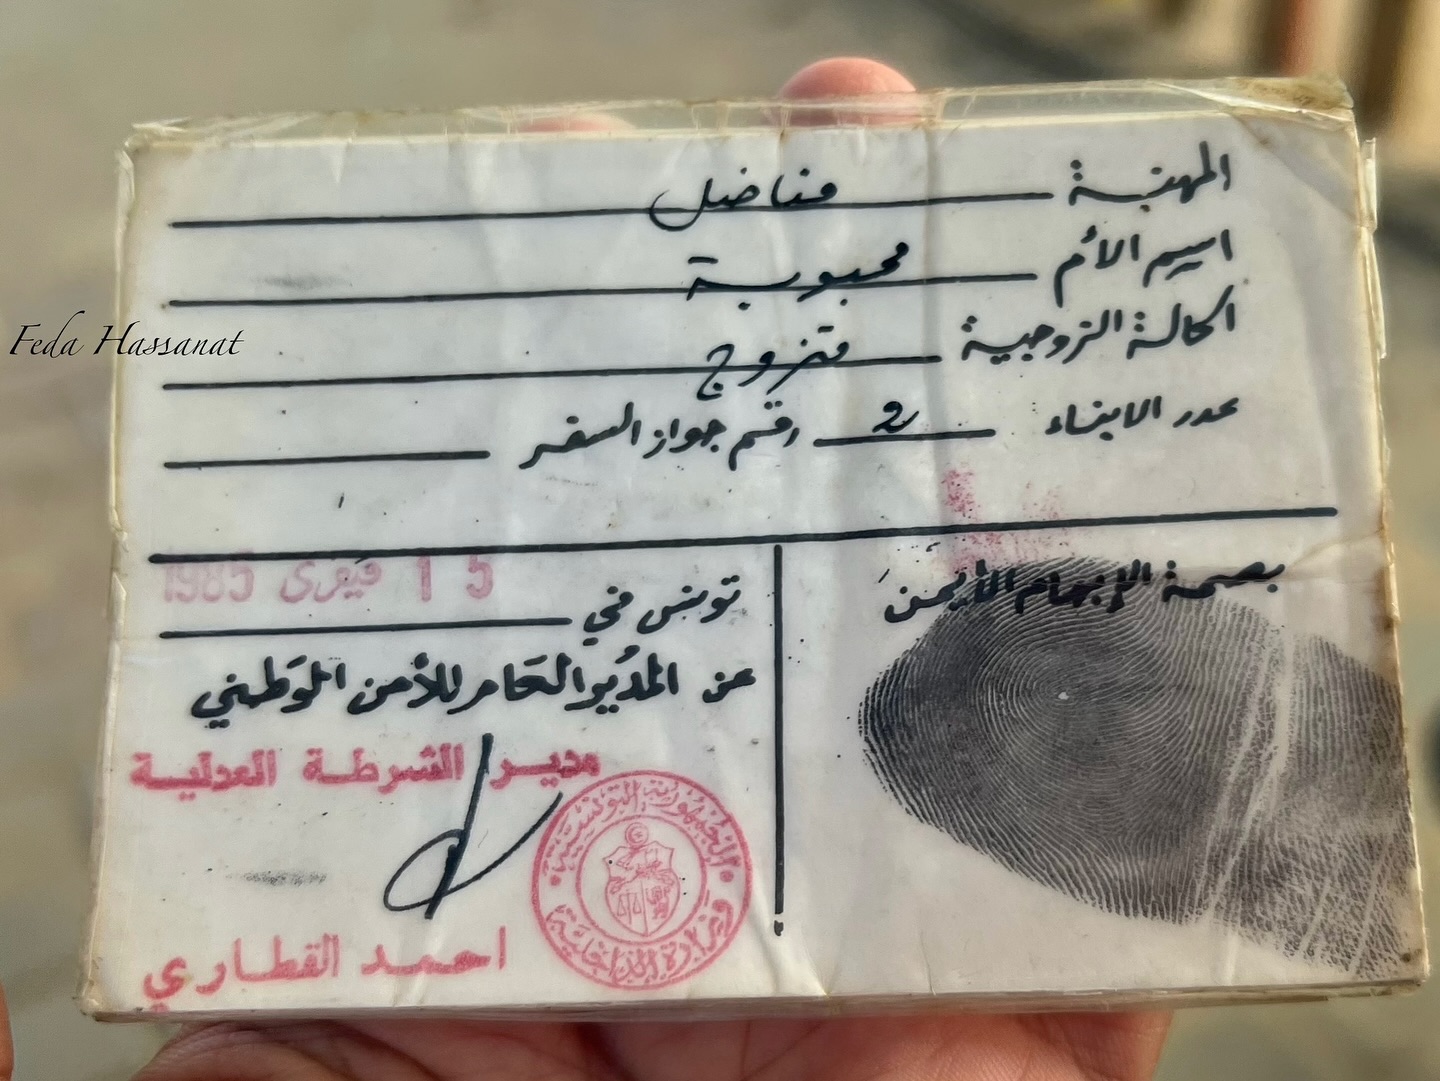 المهنة مناضل
اسم الأم محبوبة
الحالة الزوجية متزوج
عدد الابناء 2 رقم جواز السفر
Feda Hassanat
بصمة الإبهام الأيمن
تونس في 15 فيفري 1985
عن المدير العام للأمن الوطني
مدير الشرطة العدلية
الجمهورية التونسية
وزارة الداخلية
احمد القطاري